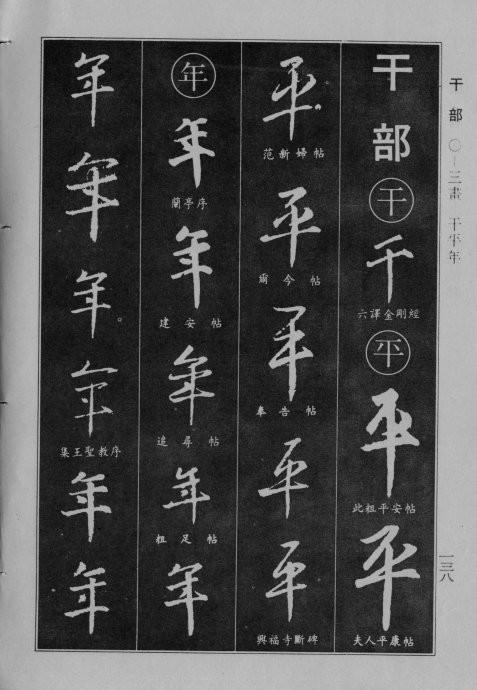 干部 〇—三畫 干平年
一三八
干部
干
千
六譯金剛經
平
平
此粗平安帖
平
夫人平康帖
平
范新婦帖
平
爾今帖
平
奉告帖
平
平
興福寺斷碑
年
年
蘭亭序
年
建安帖
年
追尋帖
年
粗足帖
年
年
年
年
年
集王聖教序
年
年